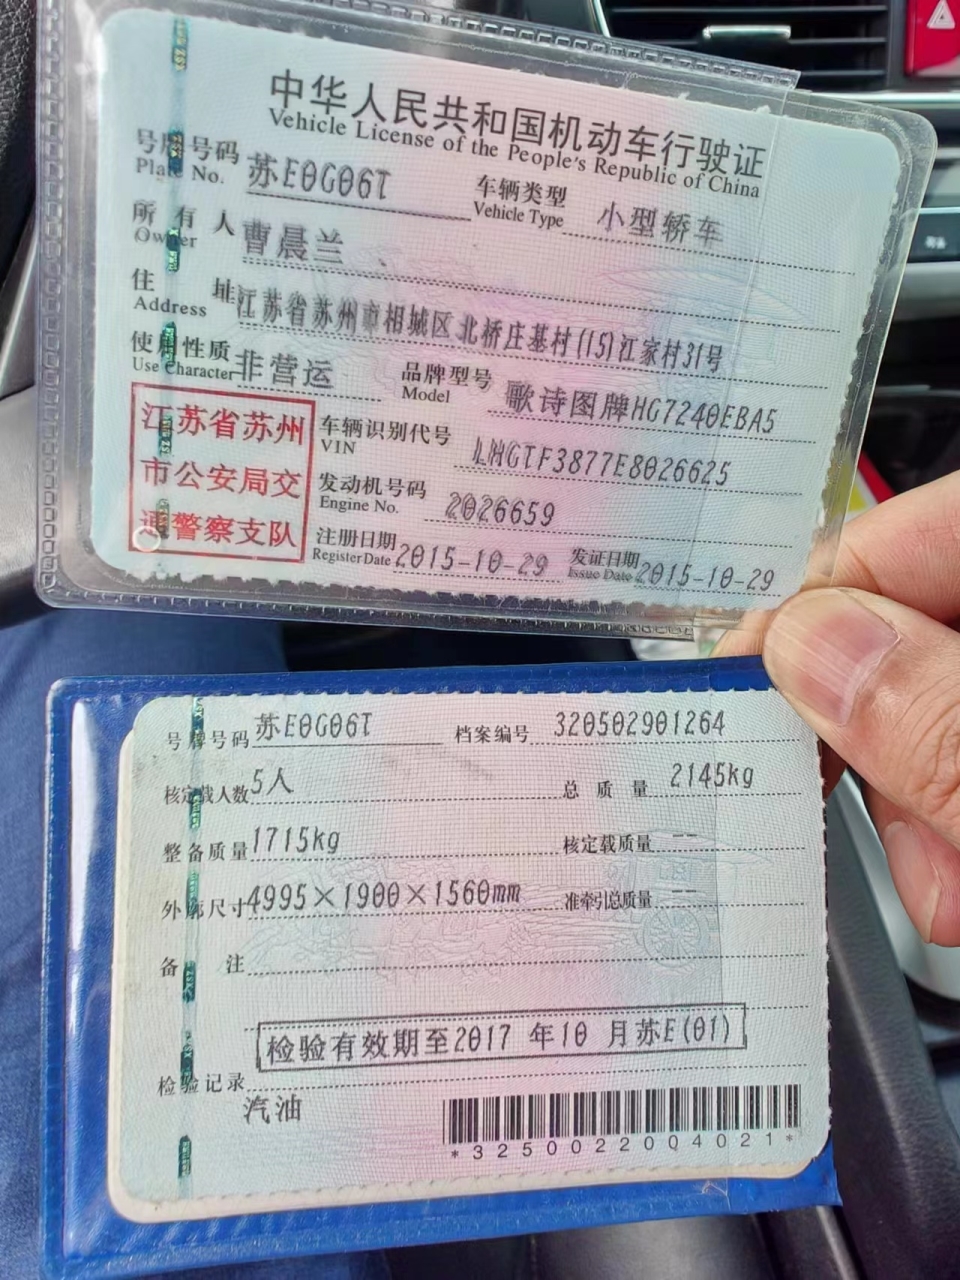 中华人民共和国机动车行驶证
Vehicle License of the People's Republic of China
号牌号码 Plate No. 苏E0G06T 车辆类型 Vehicle Type 小型轿车
所有人 Owner 曹晨兰
住址 Address 江苏省苏州市相城区北桥庄基村(15)江家村31号
使用性质 Use Character 非营运 品牌型号 Model 歌诗图牌HG7240EBA5
江苏省苏州
市公安局交
通警察支队
车辆识别代号 VIN LHGTF3877E8026625
发动机号码 Engine No. 2026659
注册日期 Register Date 2015-10-29 发证日期 Issue Date 2015-10-29
号牌号码 苏E0G06T 档案编号 320502901264
核定载人数 5人 总质量 2145kg
整备质量 1715kg 核定载质量 --
外廓尺寸 4995×1900×1560mm 准牵引总质量 --
备注
检验有效期至2017年10月苏E(01)
检验记录
汽油
*3250022004021*